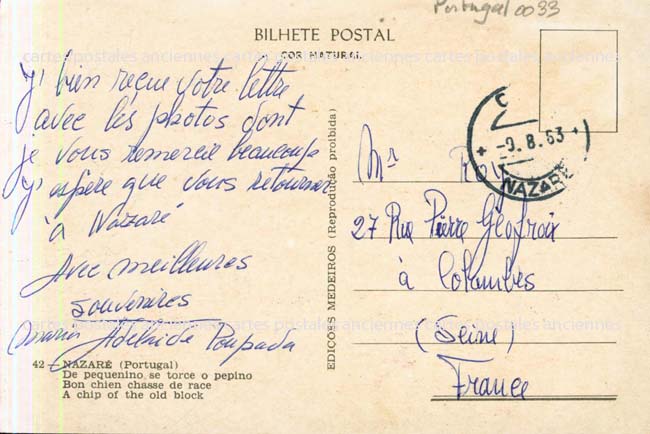 Portugal 0033
BILHETE POSTAL
COR NATURAL
cartes postales anciennes cartes postales anciennes cartes postales anciennes
J'i bien reçue votre lettre
avec les photos dont
je vous remercie beaucoup
J'aspère que vous retourner
à Nazaré
Avec meilleures
souvenires
Adelaide Poupada
42 - NAZARÉ (Portugal)
De pequenino se torce o pepino
Bon chien chasse de race
A chip of the old block
EDIÇÕES MEDEIROS (Reprodução proibida)
-9.8.63
NAZARÉ
Mr Roy
27 Rue Pierre Géofroix
à Colombes
(Seine)
France
cartes postales anciennes cartes postales anciennes cartes postales anciennes